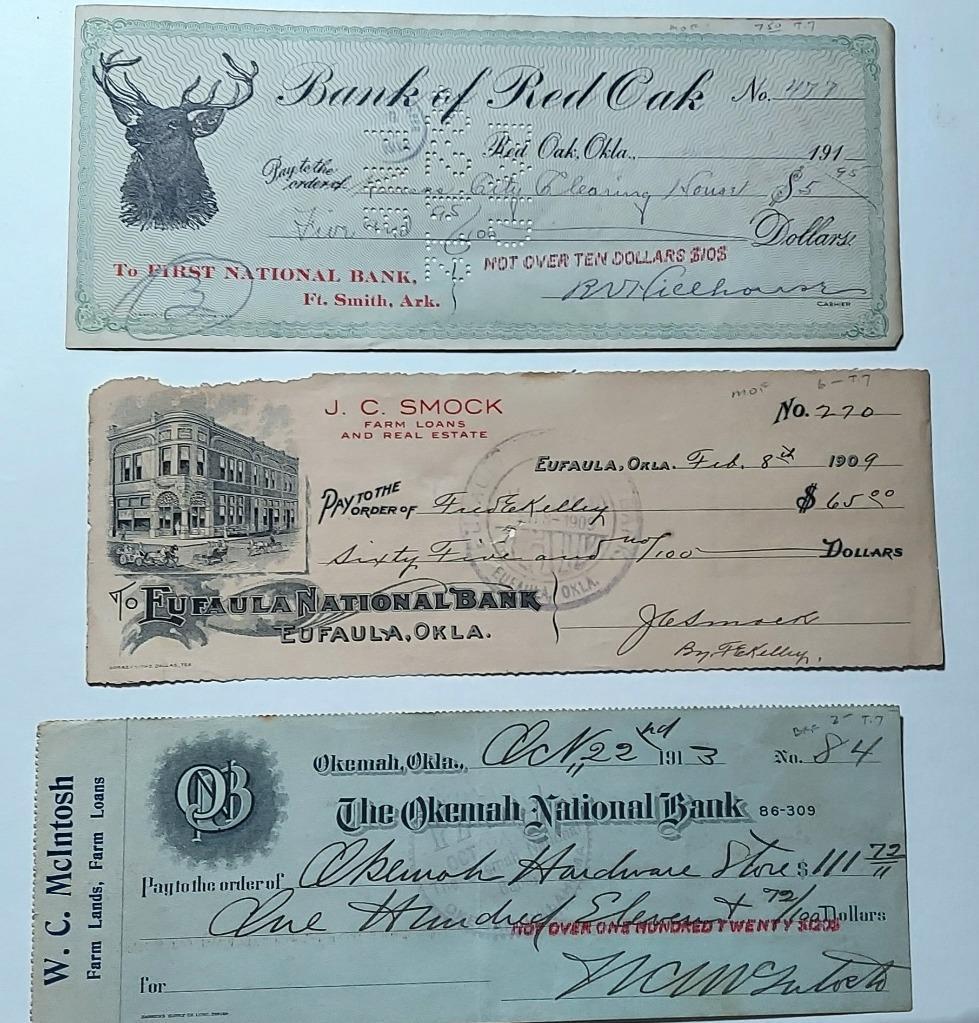 MOF 7.50 T.7
Bank of Red Oak No. 477
Red Oak, Okla., 191
Pay to the order of Kansas City Clearing House $5 95
Five and 95/100 Dollars
NOT OVER TEN DOLLARS $10$
To FIRST NATIONAL BANK,
Ft. Smith, Ark.
CASHIER
MOF 6- T.7
J. C. SMOCK
FARM LOANS
AND REAL ESTATE
No. 270
EUFAULA, OKLA. Feb. 8th 1909
PAY TO THE ORDER OF Fred E Kelley $ 65 00
Sixty Five and no/100 DOLLARS
EUFAULA, OKLA.
TO EUFAULA NATIONAL BANK
EUFAULA, OKLA.
J C Smock
By F E Kelley.
DALLAS, TEX
W. C. McIntosh
Farm Lands, Farm Loans
T.7
ONB
Okemah, Okla., Oct, 22nd 1913 No. 84
The Okemah National Bank 86-309
Pay to the order of Okemah Hardware Store $ 111 72
One Hundred Eleven + 72/100 Dollars
NOT OVER ONE HUNDRED TWENTY $120$
for
W C McIntosh